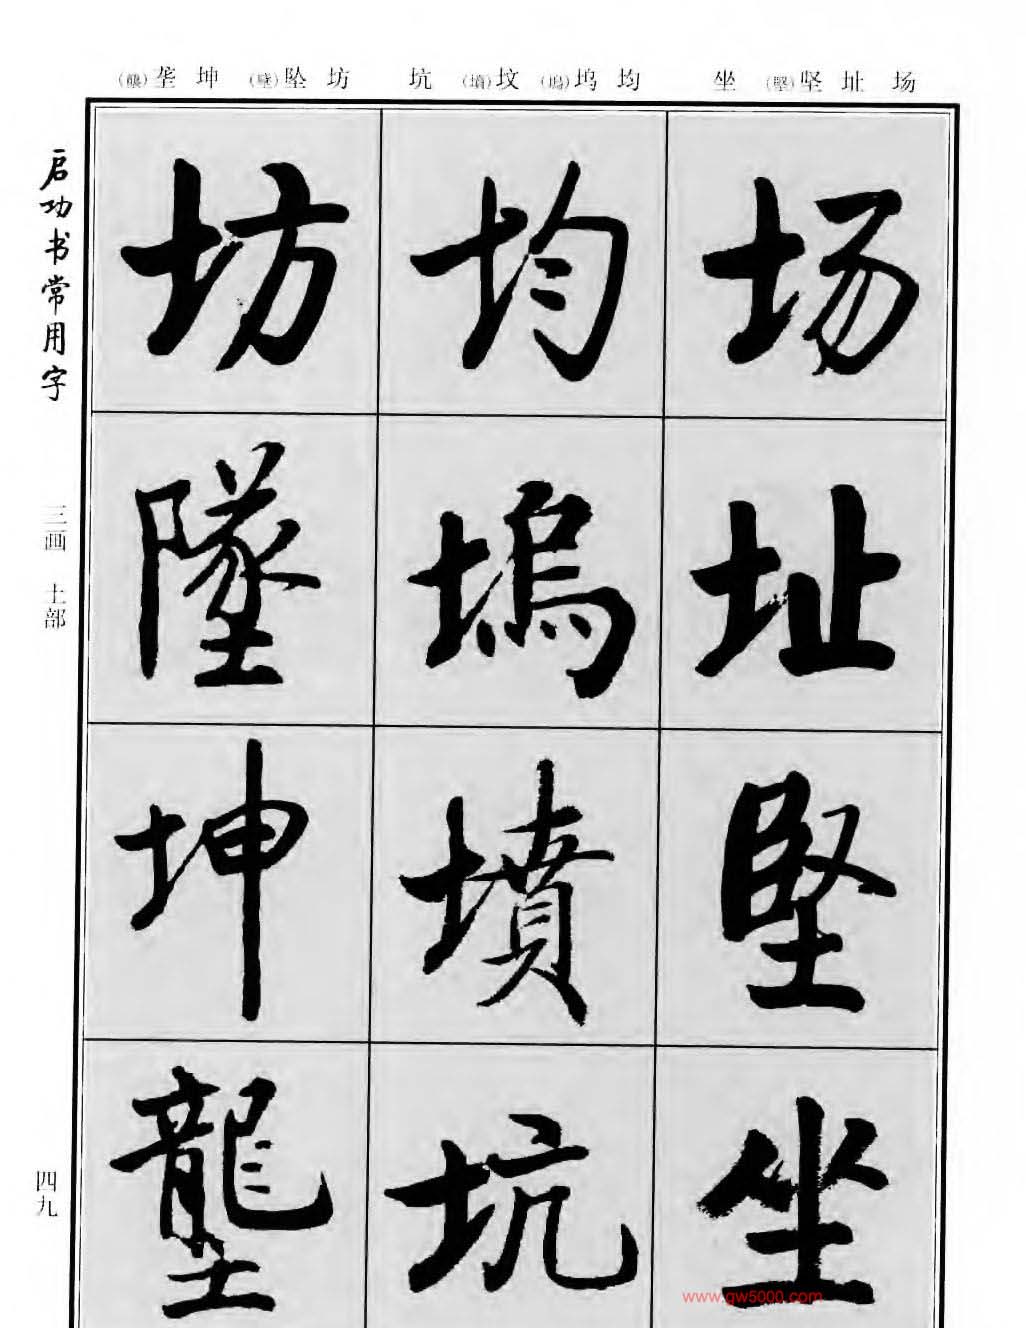 场 址 坚(堅) 坐
均 坞(塢) 坟(墳) 坑
坊 坠(墜) 坤 垄(壟)
启功书常用字
三画 土部
四九
场 址 堅 坐
均 塢 墳 坑
坊 墜 坤 壟
www.gw5000.com